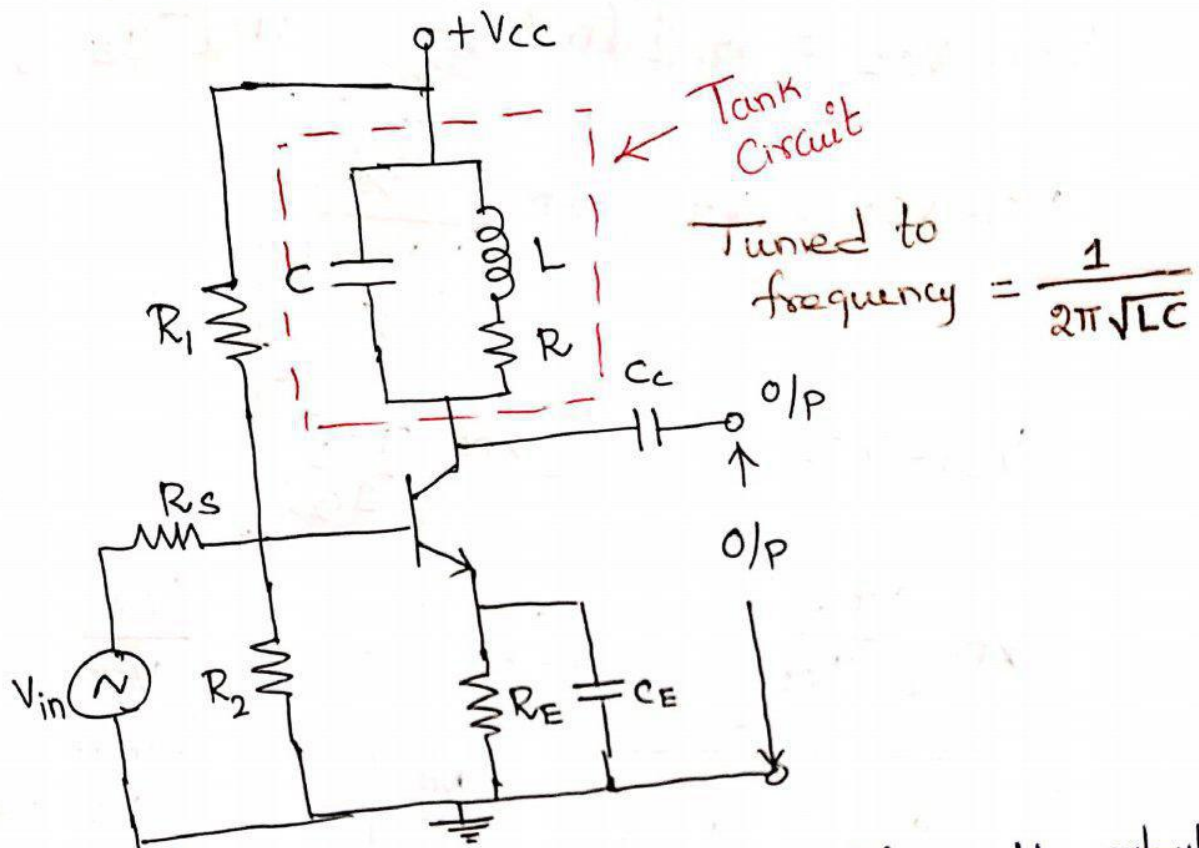 +Vcc
Tank
Circuit
Tuned to
frequency = 1 / 2π√LC
C
L
R
R1
Cc
O/P
Rs
O/P
Vin
R2
RE
CE